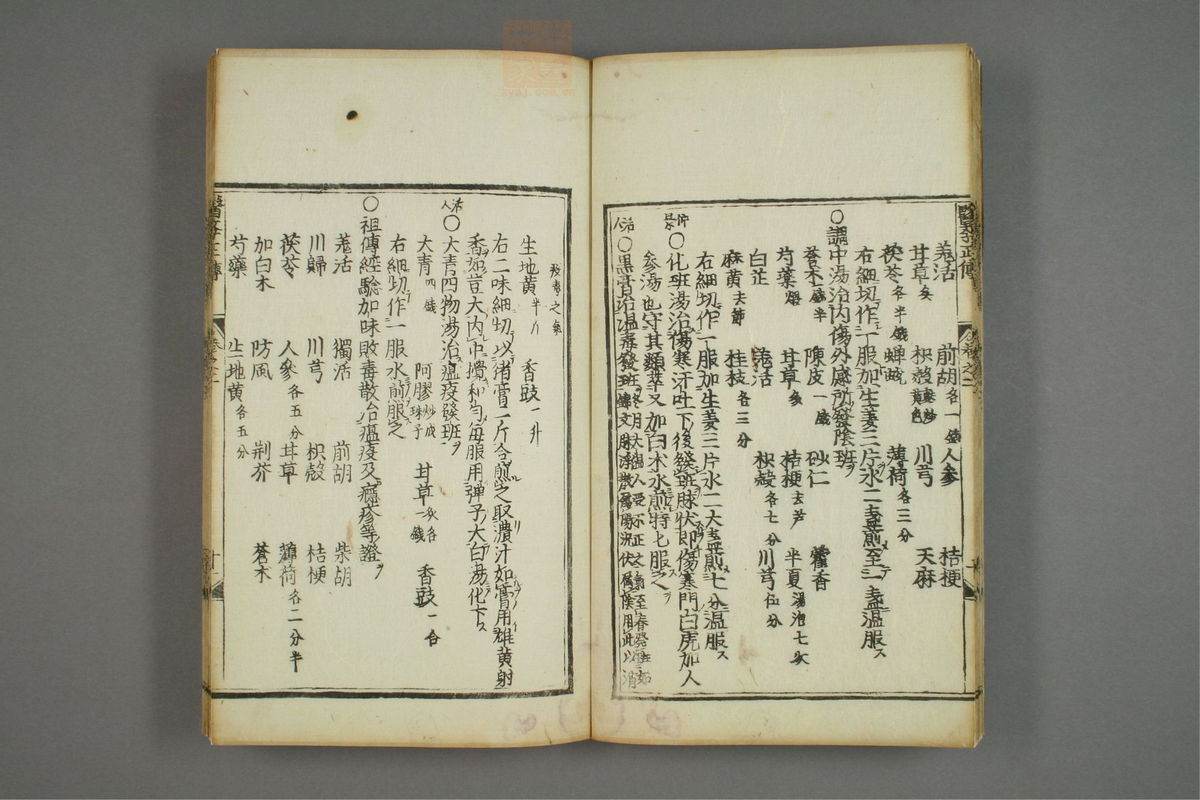 醫學正傳
卷之二
羌活　前胡各一錢　人參　桔梗
甘草炙　枳殼麩炒黃色　川芎　天麻
茯苓各半錢　蟬蛻　薄荷各三分
右細切作一服加生姜三片水二盞煎至一盞温服ス
○調中湯治内傷外感所發陰班ヲ
蒼朮一錢半　陳皮一錢　砂仁　藿香
芍藥煨　甘草炙　桔梗去芦　半夏湯泡七次
白芷　羗活　枳殼各七分　川芎伍分
麻黄去節　桂枝各三分
右細切作一服加生姜三片水二大盞煎七分温服ス
○化班湯治傷寒汗吐下後發班脉伏即傷寒門白虎加人
參湯也守其類萃又加白朮水煎特七服之ヲ
活人
○黒膏治温毒發班
生地黄半斤　香豉一升
右二味細切以猪膏二斤合煎之取濃汁如膏用雄黄射
香如豆大内中攪和勻每服用弾子大白湯化下ス
活人
○大青四物湯治瘟疫發班ヲ
大青四錢　阿膠炒成珠子　甘草炙各一錢　香豉一合
右細切作一服水煎服之
○祖傳經驗加味敗毒散治瘟疫及癮疹等證ヲ
羗活　獨活　前胡　柴胡
川歸　川芎　枳殼　桔梗
茯苓　人參各五分　甘草　薄荷各二分半
加白朮　防風　荆芥　蒼朮
芍藥　生地黄各五分